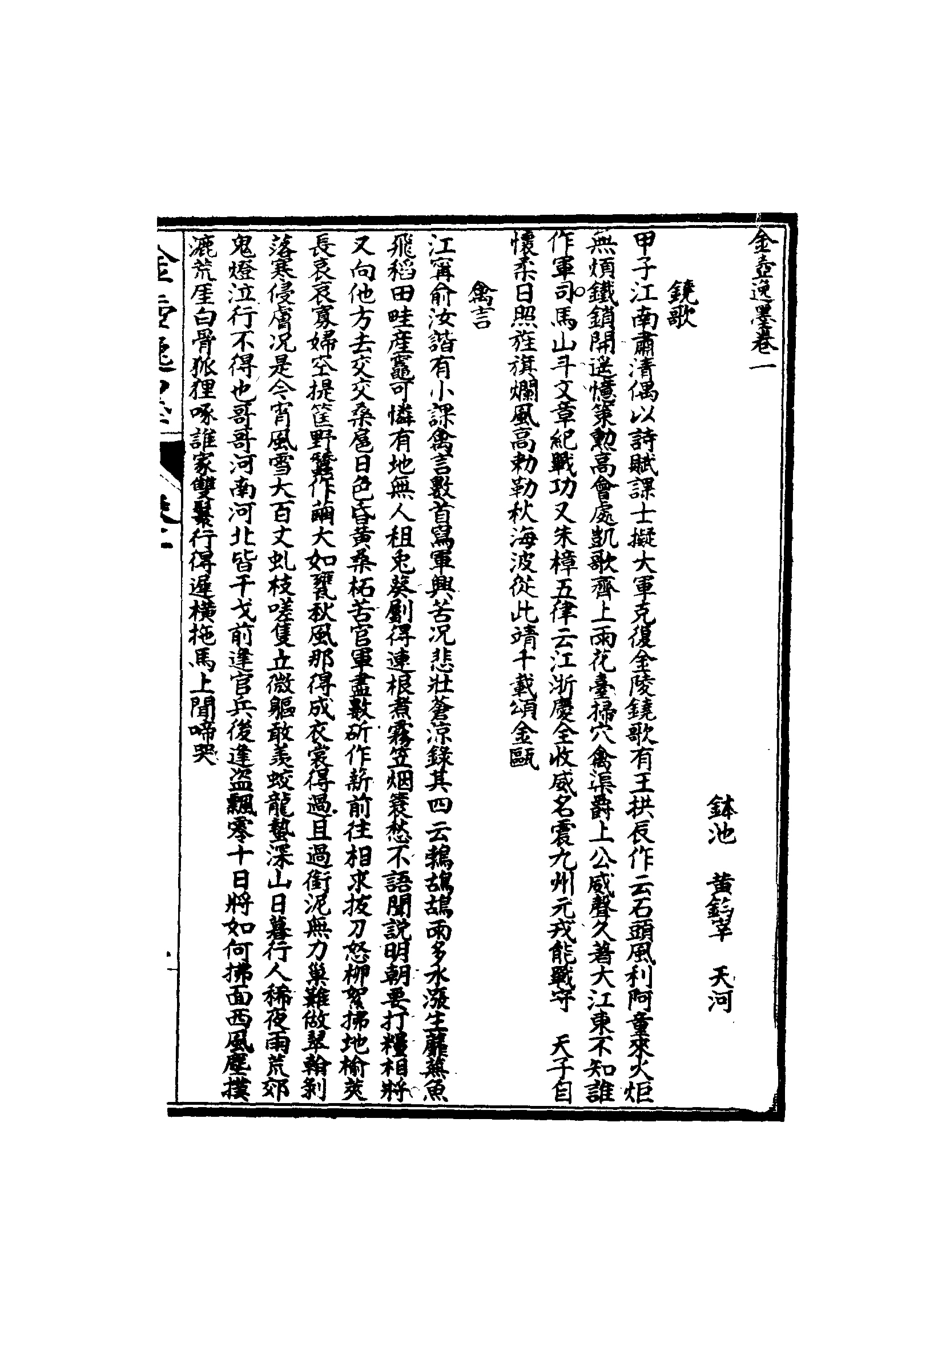 金壺逸墨卷一
鉢池　黃鈞宰　天河
鐃歌
甲子江南肅清偶以詩賦課士擬大軍克復金陵鐃歌有王拱辰作云石頭風利阿童來火炬
無煩鐵鎖開遥憶策勳高會處凱歌齊上雨花臺掃穴禽渠爵上公威聲久著大江東不知誰
作軍司馬山斗文章紀戰功又朱樟五律云江浙慶全收威名震九州元戎能戰守　天子自
懷柔日照旌旗爛風高勅勒秋海波從此靖千載頌金甌
禽言
江甯俞汝諧有小課禽言數首寫軍興苦况悲壯蒼涼錄其四云鵓鴣鴣雨多水漲生蘼蕪魚
飛稻田畦産鼃可憐有地無人租兔葵劚得連根煮霧笠烟簑愁不語聞説明朝要打糧相將
又向他方去交交桑扈日色昏黄桑柘苦官軍盡數斫作薪前往相求拔刀怒柳絮拂地榆莢
長哀哀寡婦空提筐野蠶作繭大如甕秋風那得成衣裳得過且過銜泥無力巢難做翠翰剝
落寒侵膚况是今宵風雪大百丈虬枝嗟隻立微軀敢羡蛟龍蟄深山日暮行人稀夜雨荒郊
鬼燈泣行不得也哥哥河南河北皆干戈前逢官兵後逢盗飄零十日將如何拂面西風塵撲
漉荒厓白骨狐狸啄誰家雙鬟行得遲橫拖馬上聞啼哭